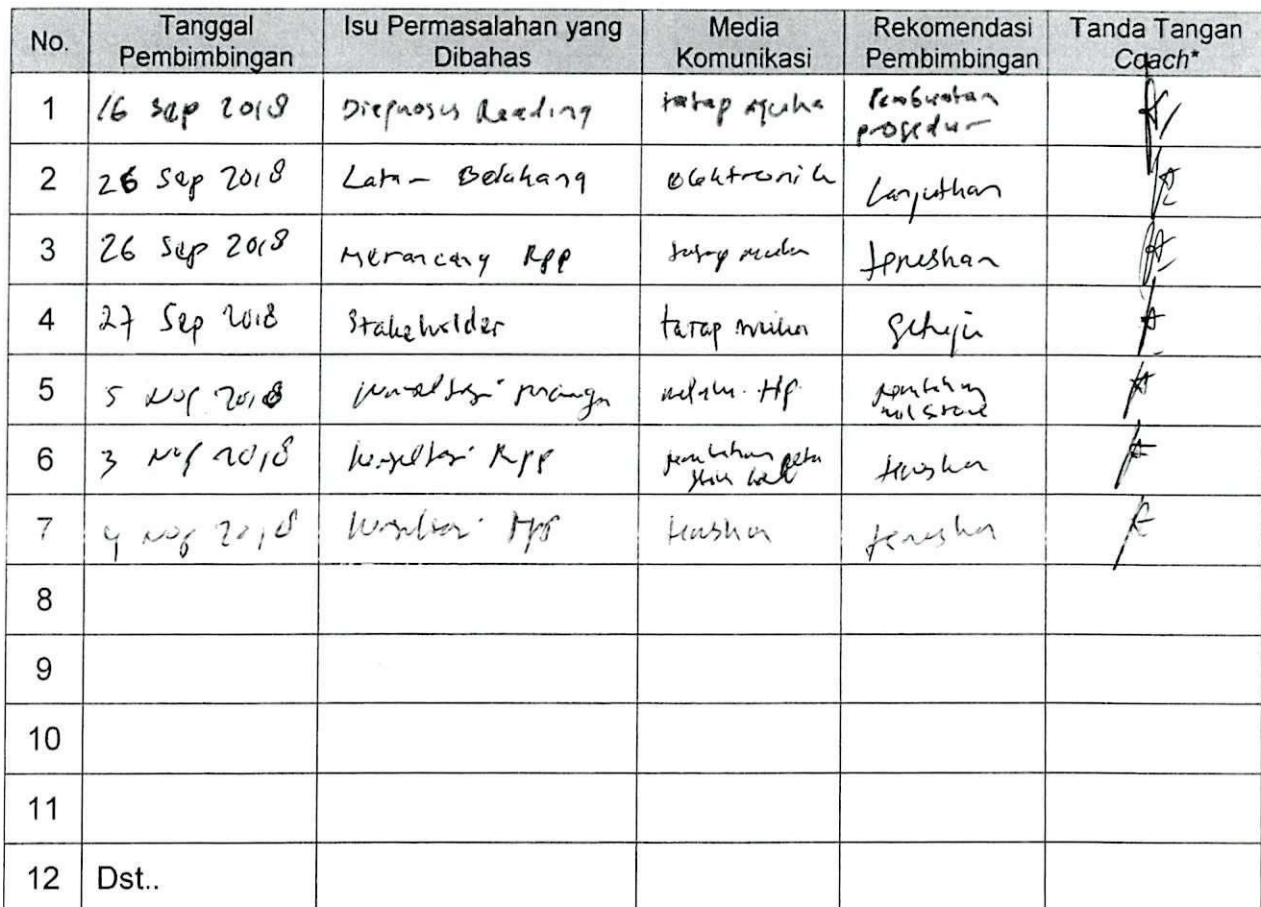 No. Tanggal Pembimbingan Isu Permasalahan yang Dibahas Media Komunikasi Rekomendasi Pembimbingan Tanda Tangan Coach*
1 16 Sep 2018 Diagnosis Reading tatap muka Pembuatan prosedur
2 26 Sep 2018 Latar Belakang elektronik Lanjutkan
3 26 Sep 2018 Merancang Rpp tatap muka teruskan
4 27 Sep 2018 Stakeholder tatap muka Setuju
5 5 Nof 2018 Hp
6 3 Nof 2018 Konsultasi Rpp teruskan
7 4 Nof 2018 Konsultasi teruskan teruskan
8
9
10
11
12 Dst..